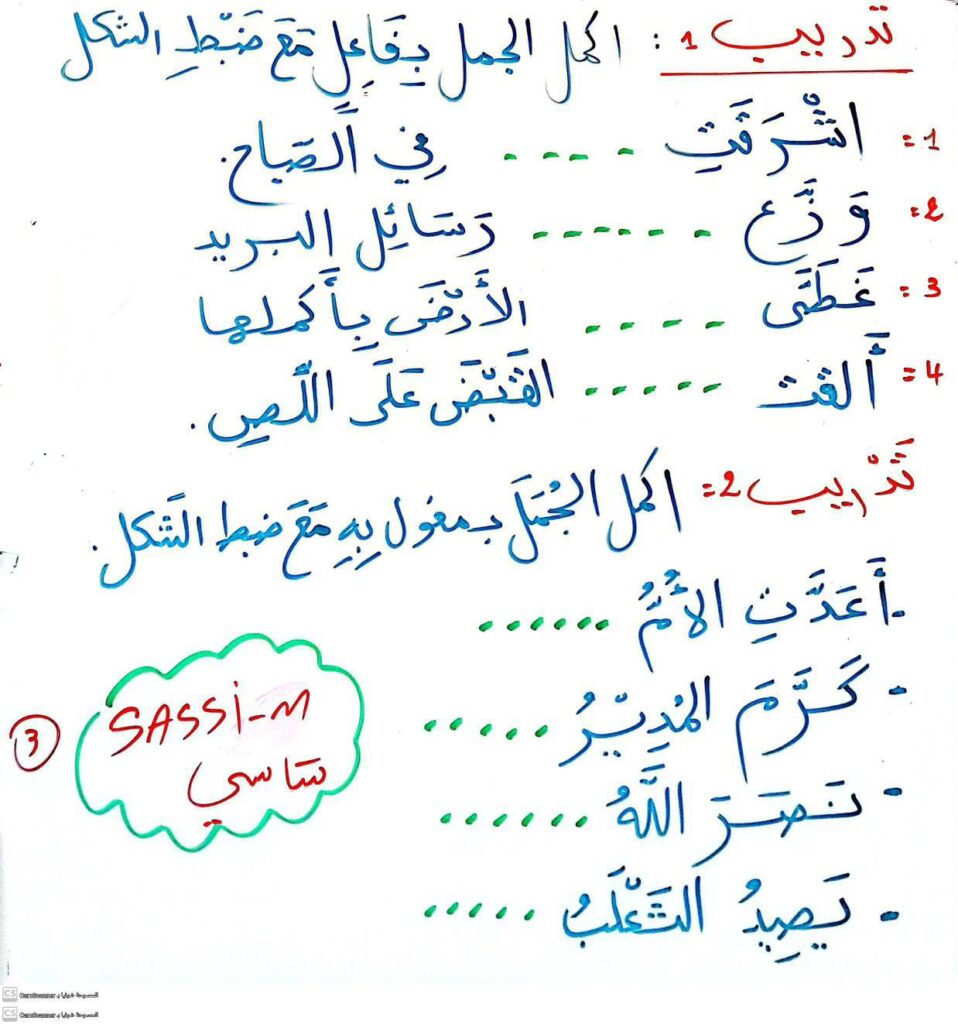 تدريب 1 : اكمل الجمل بِفَاعِلٍ مَعَ ضَبْطِ الشكل
1= اشْرَقَتِ .... فِي الصَّبَاح.
2= وَزَّع ...... رَسَائِل البريد
3= غَطَّى .... الأَرْضَ بِأَكملها
4= أَلقت ..... القَبْضَ عَلَى اللِّصِ .
تَدْرِيب 2= اكمل الجُمَلَ بمفعول بِهِ مَعَ ضبط الشَّكل.
- أَعَدَّتِ الأُمُّ ......
- كَرَّمَ المُدِيْرُ .....
- نَصَرَ اللَّهُ ......
- يَصِيدُ الثَّعْلَبُ .....
SASSi-M
ساسي
3
CS CamScanner الممسوحة ضوئيا بـ
CS CamScanner الممسوحة ضوئيا بـ